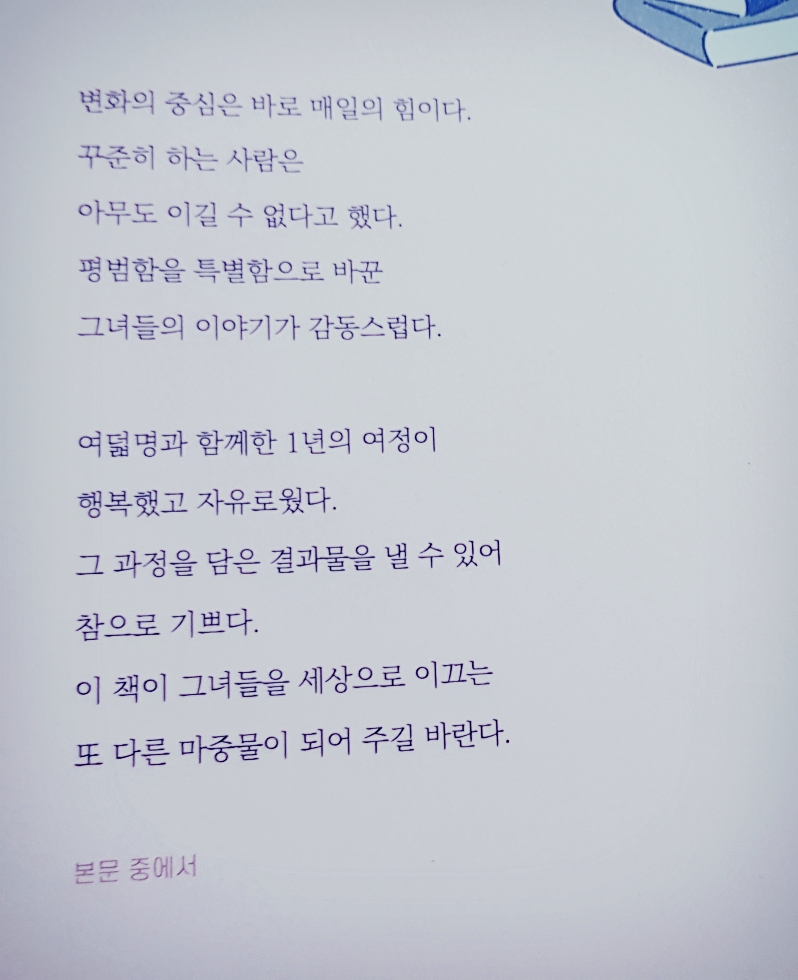 변화의 중심은 바로 매일의 힘이다.
꾸준히 하는 사람은
아무도 이길 수 없다고 했다.
평범함을 특별함으로 바꾼
그녀들의 이야기가 감동스럽다.
여덟명과 함께한 1년의 여정이
행복했고 자유로웠다.
그 과정을 담은 결과물을 낼 수 있어
참으로 기쁘다.
이 책이 그녀들을 세상으로 이끄는
또 다른 마중물이 되어 주길 바란다.
본문 중에서